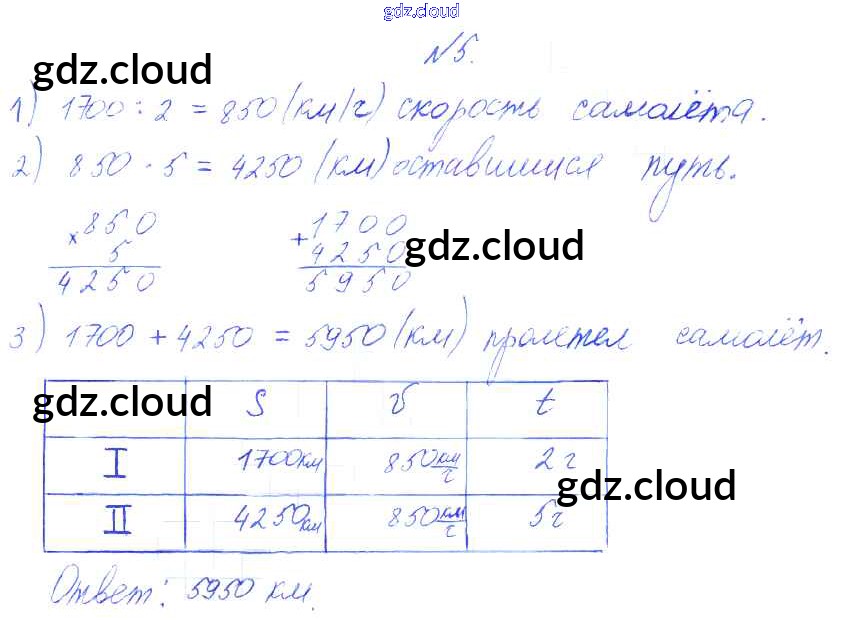 gdz.cloud
№5.
gdz.cloud
1) 1700 : 2 = 850 (км/ч) скорость самолёта.
2) 850 · 5 = 4250 (км) оставшийся путь.
×850 +1700
5 4250 gdz.cloud
4250 5950
3) 1700 + 4250 = 5950 (км) пролетел самолёт.
gdz.cloud S v t
I 1700км 850км/ч 2ч
gdz.cloud
II 4250км 850км/ч 5ч
Ответ: 5950 км.